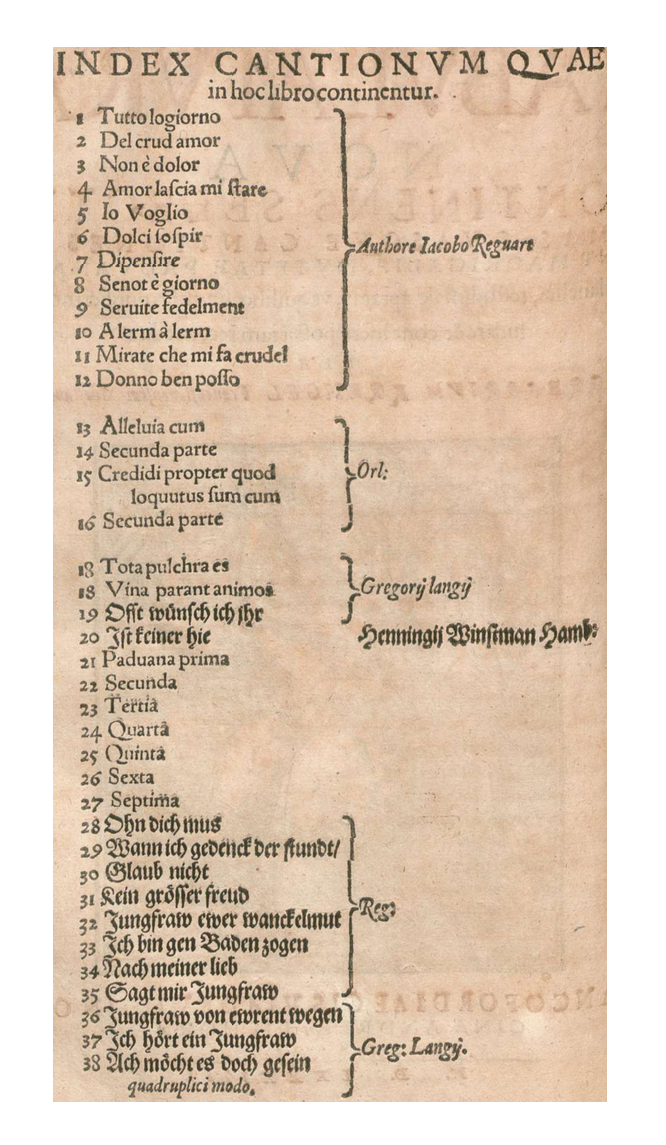 INDEX CANTIONVM QVAE
in hoc libro continentur.
1 Tutto logiorno
2 Del crud amor
3 Non è dolor
4 Amor laſcia mi ſtare
5 Io Voglio
6 Dolci ſoſpir
7 Dipenſire
8 Senot è giorno
9 Seruite fedelment
10 A lerm à lerm
11 Mirate che mi fa crudel
12 Donno ben poſſo
Authore Iacobo Reguart
13 Alleluia cum
14 Secunda parte
15 Credidi propter quod
loquutus ſum cum
16 Secunda parte
Orl:
18 Tota pulchra es
18 Vina parant animos
19 Offt wünſch ich jhr
Gregorij langij
20 Iſt keiner hie
Henningij Winſtman Hamb:
21 Paduana prima
22 Secunda
23 Tertia
24 Quarta
25 Quinta
26 Sexta
27 Septima
28 Ohn dich mus
29 Wann ich gedenck der ſtundt/
30 Glaub nicht
31 Kein gröſſer freud
32 Jungfraw ewer wanckelmut
33 Ich bin gen Baden zogen
34 Nach meiner lieb
35 Sagt mir Jungfraw
Reg:
36 Jungfraw von ewrent wegen
37 Ich hört ein Jungfraw
38 Ach möcht es doch geſein
quadruplici modo.
Greg: Langij.